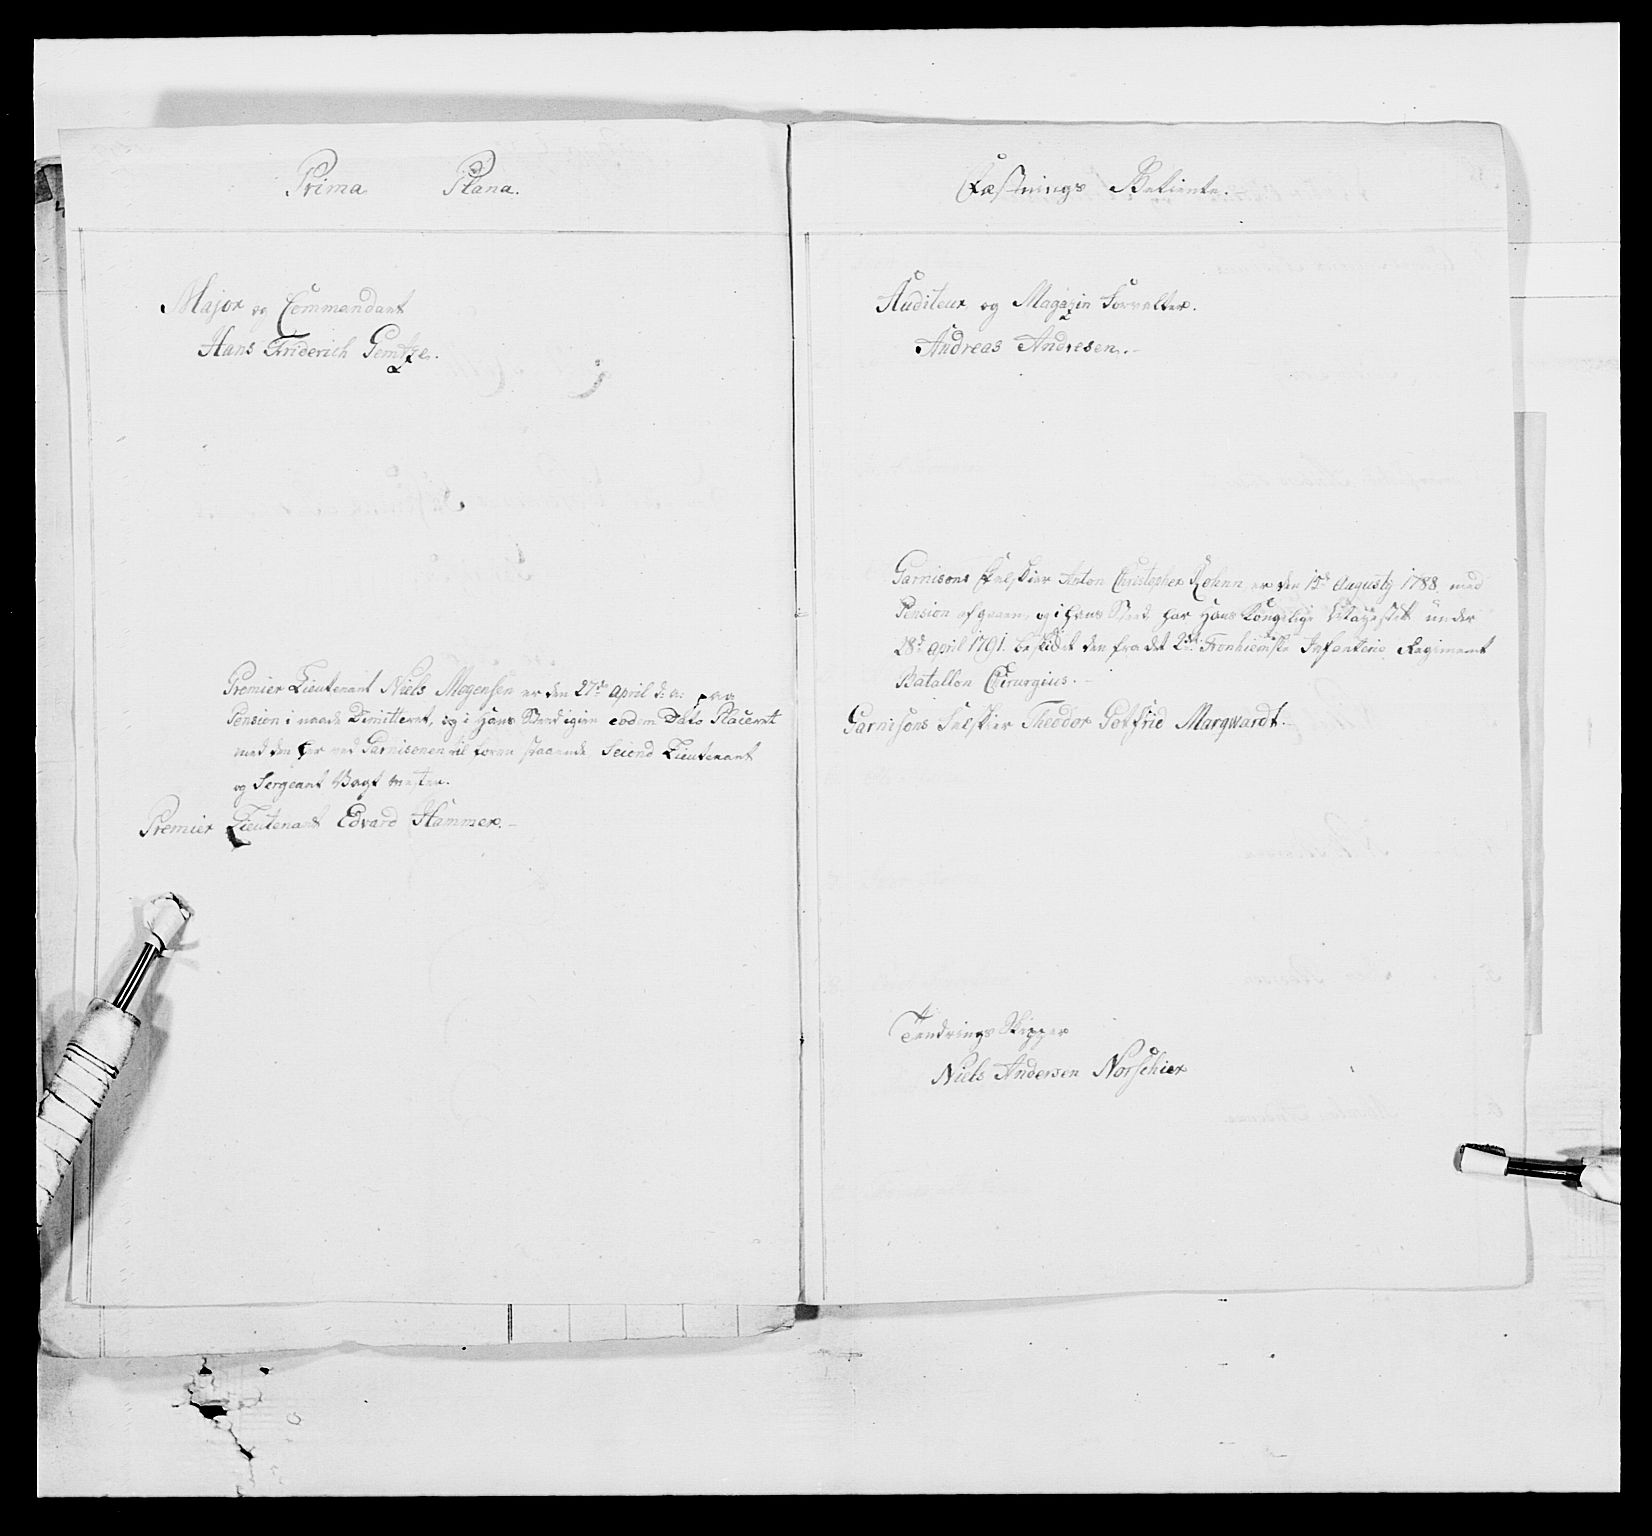 Prima Plana.
Major og Commandant
Hans Friderich Gemtze.
Premier Lieutenant Niels Mogensen er den 27de April d: a: paa
Pension i naade Dimitteret, og i Hans Sted igien eodem Dato Placeret
med den her ved Garnisonen til foren staaende Secund Lieutenant
og Sergeant Vagt mester.
Premier Lieutenant Edvard Hammer.
Fæstnings Betiente.
Auditeur og Magazin Forvalter.
Andreas Andresen.
Garnisons Feldskier Anton Christopher Rohnn er den 15d Augusty 1788 med
Pension afgaaen, og i hans Sted har Hans Kongelige Mayestet under
28d april 1791. beskiket den fra det 2det Tronhiemske Infanterie Regiment
Batallon Chirurgius.
Garnisons Felskier Theodor Gotfrid Marqwardt.
Tendrings Skipper
Niels Andersen Norschier